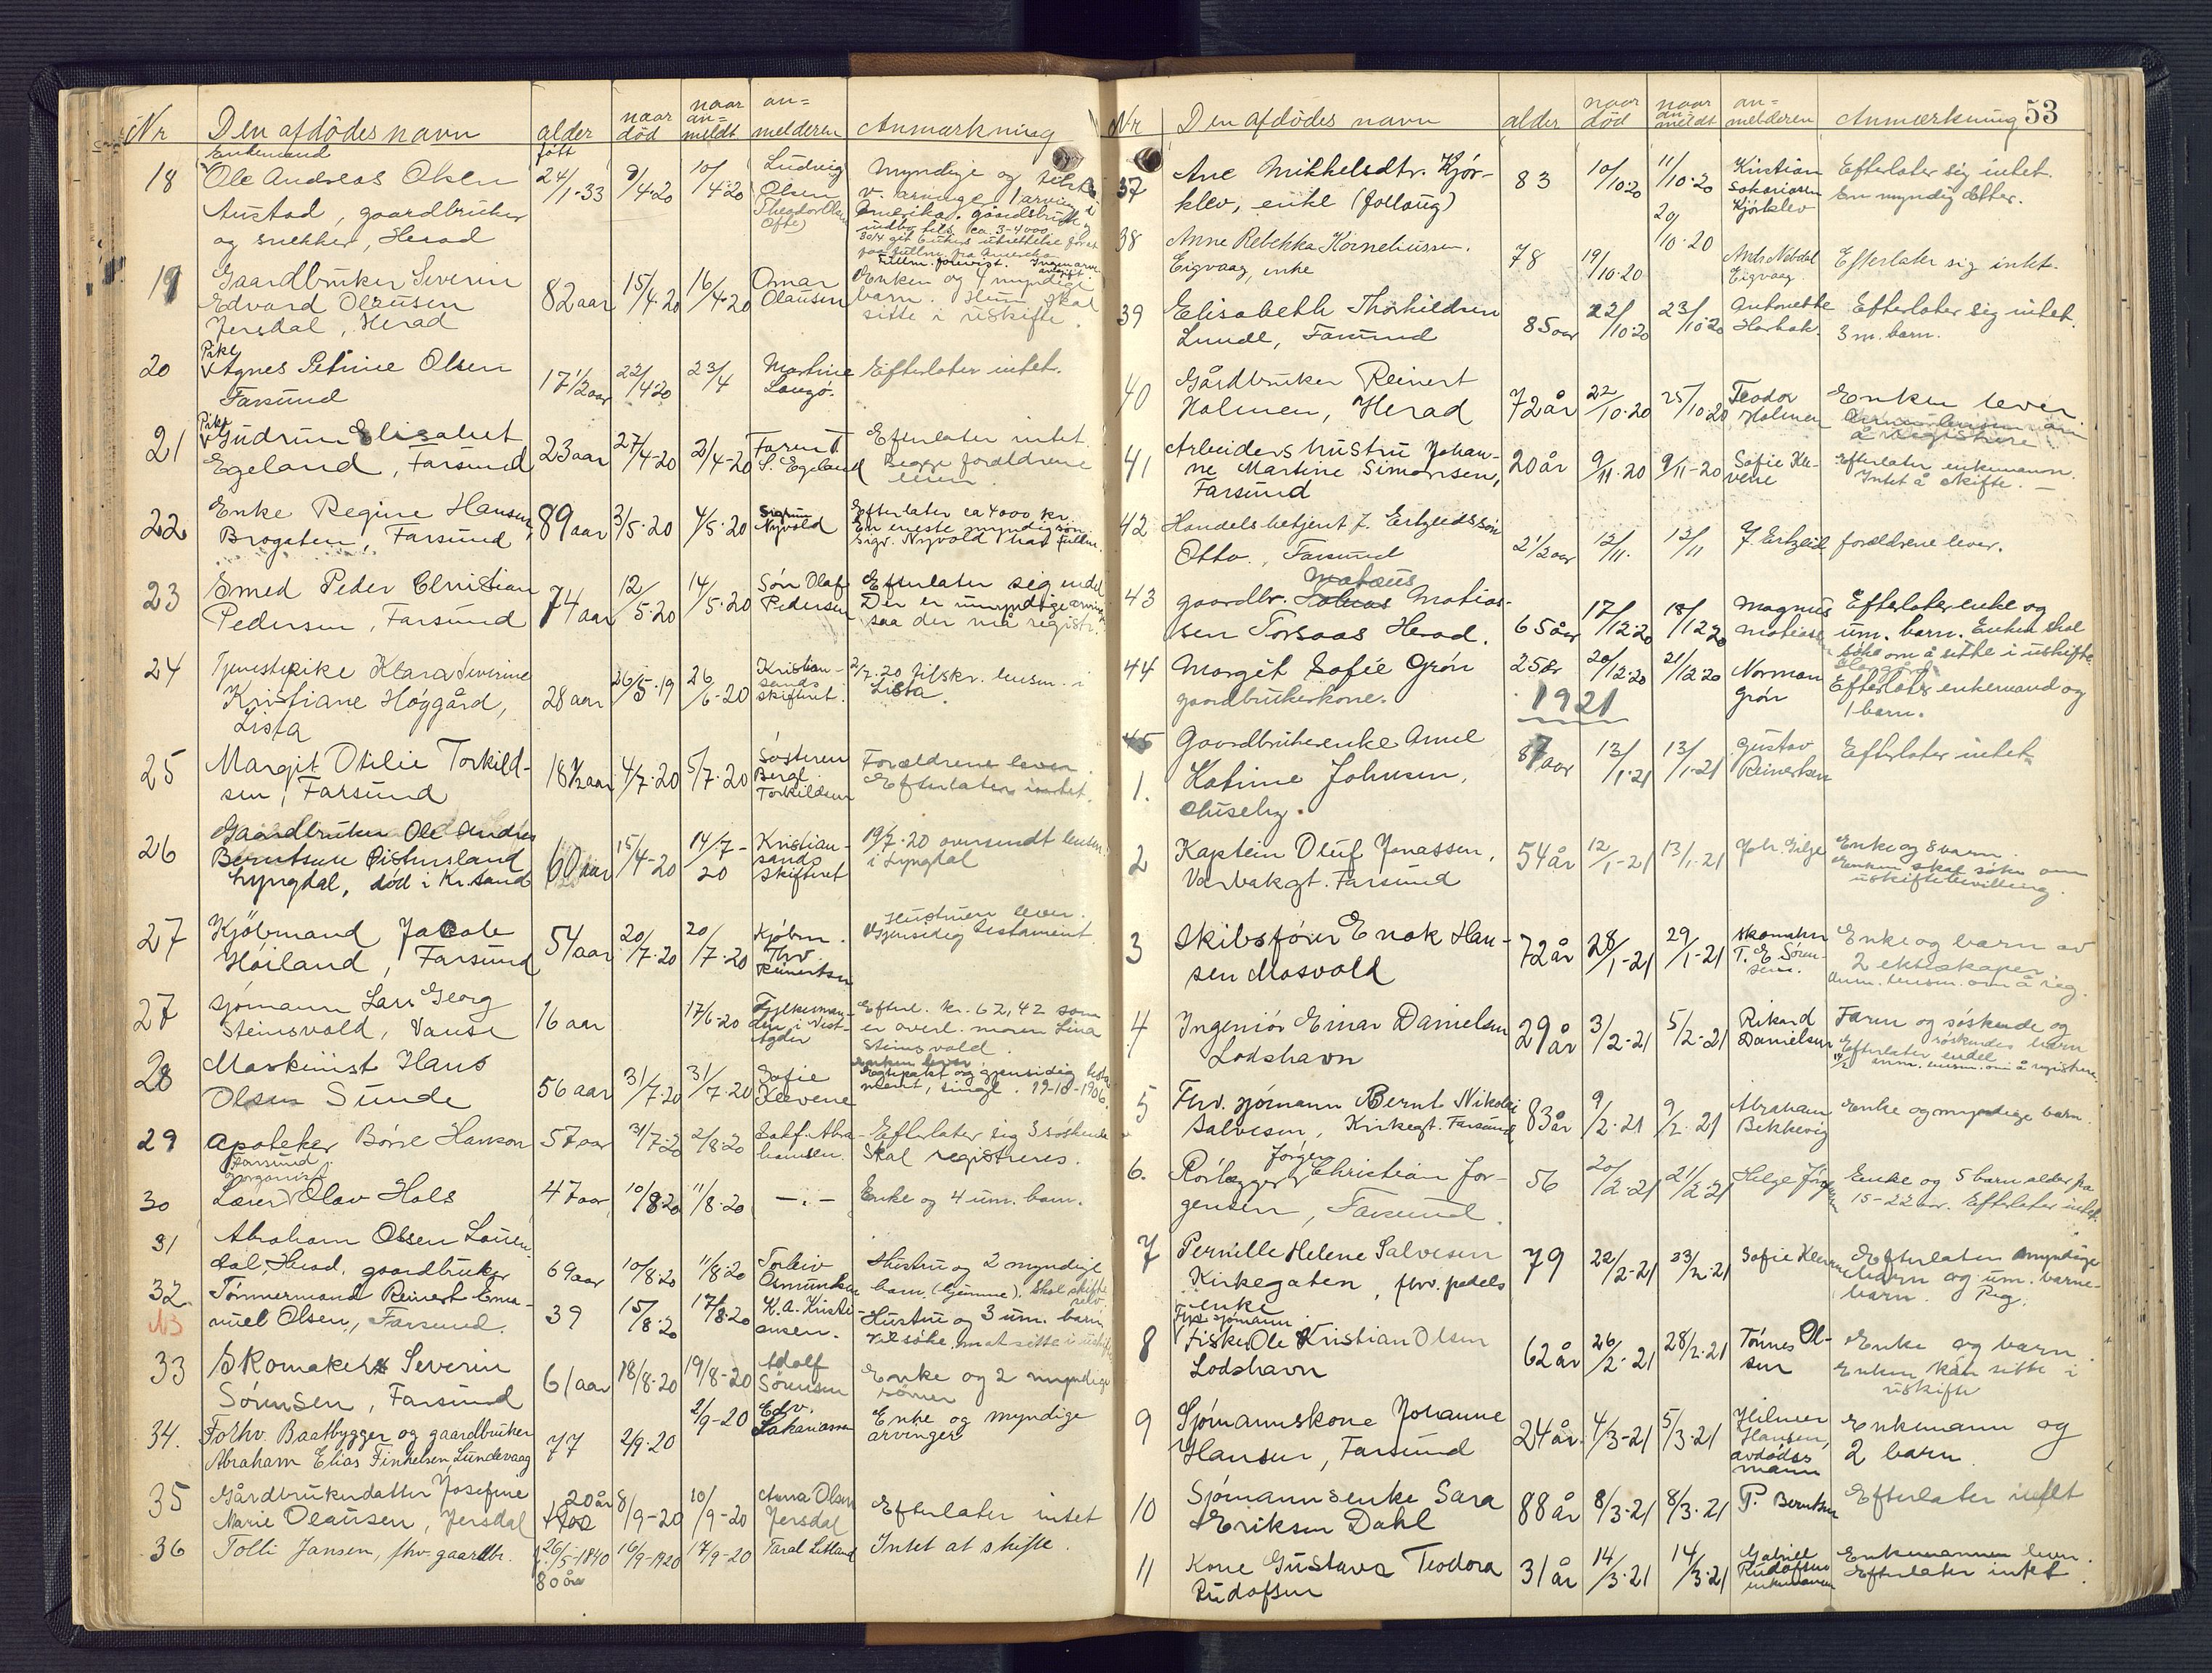 Nr Den afdödes navn alder naar död naar an=meldt an=melderen Anmærkning
18 Enkemand født
Ole Andreas Olsen 24/1-33 9/4-20 10/4-20 Ludvig Olsen
Austad, gaardbruker
og snekker, Herad
19 Gaardbruker Severin
Edvard Olausen 82 aar 15/4-20 16/4-20 Omar Olausen Enken og 4 myndige barn. Hun skal sitte i uskifte.
Jersdal, Herad
20 Pike
Agnes Petrine Olsen 17 1/2 aar 22/4-20 23/4 Martine Langö. Efterlater intet.
Farsund
21 Pike
Gudrun Elisabet
Egeland, Farsund 23 aar 27/4-20 Faren T. S. Egeland Efterlater intet Begge forældrene lever
22 Enke Regine Hansen, 89 aar 3/5-20 4/5-20 Sigrun Nyvold Efterlater ca 4000 kr. En eneste myndig søn Sigv. Nyvold har fullm.
Brogaten, Farsund
23 Smed Peder Christian
Pedersen, Farsund 74 aar 12/5-20 14/5-20 Sön Olaf Pedersen Efterlater sig endel Der er umyndige arvinger saa der må registr.
24 Tjenestepike Klara Severine
Kristiane Höygård, 28 aar 26/5-19 26/6-20 Kristiansands skifteret. 2/7.20 tilskr. lensm. i Lista
Lista
25 Margit Otilie Torkild-
sen, Farsund 18 1/2 aar 4/7-20 5/7-20 Søsteren Bergl. Torkildsen Forældrene lever. Efterlater intet.
26 Gaardbruker Ole Andreas
Berntsen Östensland 60 aar 15/4-20 14/7-20 Kristiansands skifteret 19/7-20 oversendt lensm. i Lyngdal
Lyngdal, död i Kr.sand
27 Kjöbmand Jacob
Höiland, Farsund 54 aar 20/7-20 20/7-20 Kjöbm. Thv. Reinertsen Hustruen lever. Gjensidig testament
27 Sjømann Lars Georg
Steinsvold, Vanse 16 aar 17/6-20 Fylkesmanden i Vest-Agder Efterl. kr. 62,42 som er overl. moren Lina Steinsvold.
28 Maskinist Hans
Olsen Sunde 56 aar 31/7-20 31/7-20 Sofie Klevene Enken lever Ægtepakt og gjensidig testament, tingl. 19-10-1906.
29 Apoteker Börre Hanson 57 aar 31/7-20 2/8-20 Salf. Abrahamsen. Efterlater sig 3 söskende Skal registreres.
Farsund
30 Lærer og organist Olav Hals 47 aar 10/8-20 11/8-20 —.— Enke og 4 um. barn.
31 Abraham Olsen Louen-
dal, Herad. gaardbruker 69 aar 10/8-20 11/8-20 Torleiv Osmundsen Hustru og 2 myndige barn (hjemme). Skal skifte selv.
32 Tömmermand Reinert Ema-
NB nuel Olsen, Farsund. 39 15/8-20 17/8-20 K.A. Kristensen. Hustru og 3 um. barn Vil söke om at sitte i uskifte
33 Skomaker Severin
Sörensen, Farsund 61 aar 18/8-20 19/8-20 Adolf Sörensen Enke og 2 myndige sönner
34. Forhv. Baatbygger og gaardbruker 77 2/9-20 2/9-20 Edv. Sakariassen Enke og myndige arvinger
Abraham Elias Finkelsen, Lundevaag
35 Gårdbrukerdatter Josefine 20 år 8/9-20 10/9-20 Anna Olsen Jersdal Efterlater intet
Marie Olausen, Jersdal
36 Tolli Jansen, fhv. gaardbr. 26/5-1840 80 år 16/9-1920 17/9-20 Taral Letland Intet at skifte.
53
Nr Den afdödes navn alder naar död naar an=meldt an=melderen Anmærkning
37 Ane Mikkelsdtr. Kjör-
klev, enke (follaug) 83 10/10-20 11/10-20 Kristian Sakariasen Kjörklev Efterlater sig intet. En myndig datter.
38 Anne Rebekka Korneliussen.
Eigvaag, enke 78 19/10-20 20/10-20 Andr. Nebdal Eigvaag. Efterlater sig intet.
39 Elisabeth Thorkildsen
Lunde, Farsund 85 aar 22/10-20 23/10-20 Antonette Harbak. Efterlater sig intet. 3 m. barn.
40 Gårdbruker Reinert
Holmen, Herad 72 år 22/10-20 25/10-20 Teodor Holmen Enken lever å registrere
41 Arbeiders hustru Johan-
ne Martine Simonsen, 20 år 9/11-20 9/11-20 Sofie Klevene Efterlater enkemann. Intet å skifte. —
Farsund
42 Handelsbetjent J. Ertzeids sön
Otto., Farsund 2 1/2 aar 12/11. 12/11 J. Ertzeid forældrene lever.
43 gaardbr. Mataus Matias-
sen Torsaas Herad. 65 år 17/12-20 18/12 20 Magnus Matiasen Efterlater enke og um. barn. Enken skal söke om å sitte i uskifte.
44 Margit Sofie Grön 25 år 20/12-20 21/12 20 Norman Grön Efterlater enkemand og 1 barn.
gaardbrukerkone.
1921
45 Gaardbrukerenke Anne 87 aar 13/1-21 13/1-21 Gustav Reinertsen Efterlater intet
1. Katrine Johnsen,
Huseby.
2 Kaptein Oluf Jonassen, 54 år 12/1-21 13/1-21 Joh. Gilje Enke og 8 barn. Enken skal söke om uskiftebevilling.
Varbakgt. Farsund
3 Skibsförer Enok Han-
sen Mosvold 72 år 28/1-21 29/1-21 Skomaker T. E. Sörensen. Enke og barn av 2 ekteskaper. Anm. lensm. om å reg.
4 Ingeniör Einar Danielsen 29 år 3/2-21 5/2-21 Rikard Danielsen Faren og söskende og söskendes barn Efterlater endel. anm. lensm. om å registrere.
Lodshavn
5 Fhv. sjömann Bernt Nikolai
Salvesen, Kirkegt. Farsund 83 år 9/2-21 9/2-21 Abraham Bekkevig Enke og myndige barn.
6. Rörlægger Jörgen Christian Jör-
gensen, Farsund. 56 20/2-21 21/2-21 Helge Jörgensen Enke og 5 barn alder fra 15-22 aar. Efterlater intet.
7 Pernille Helene Salvesen 79 22/2-21 23/2-21 Sofie Klevene Efterlater myndige barn og um. barne-barn. Reg.
Kirkegaten, fhv. pedels
enke
8 Fhv. sjömann
Fisker Ole Kristian Olsen 62 år 26/2-21 28/2-21 Tönnes Olsen Enke og barn. Enken kan sitte i uskifte
Lodshavn
9 Sjömannskone Johanne 24 år 4/3-21 5/3-21 Hilmer Hansen, avdödes mann Enkemann og 2 barn.
Hansen, Farsund
10 Sjömannsenke Sara 88 år 8/3-21 8/3-21 P. Berntsen Efterlater intet
Eriksen Dahl
11 Kone Gustava Teodora 31 år 14/3-21 14/3-21 Gabriel Rudolfsen enkemannen Enkemannen lever. Efterlater intet.
Rudolfsen